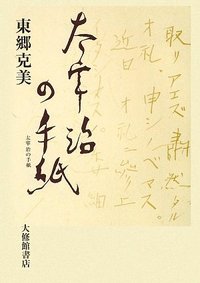 取リアエズ肅然タル
オ礼、申シノベマス。
近日オ礼
太宰治
の手紙
太宰治の手紙
東郷克美
大修館書店